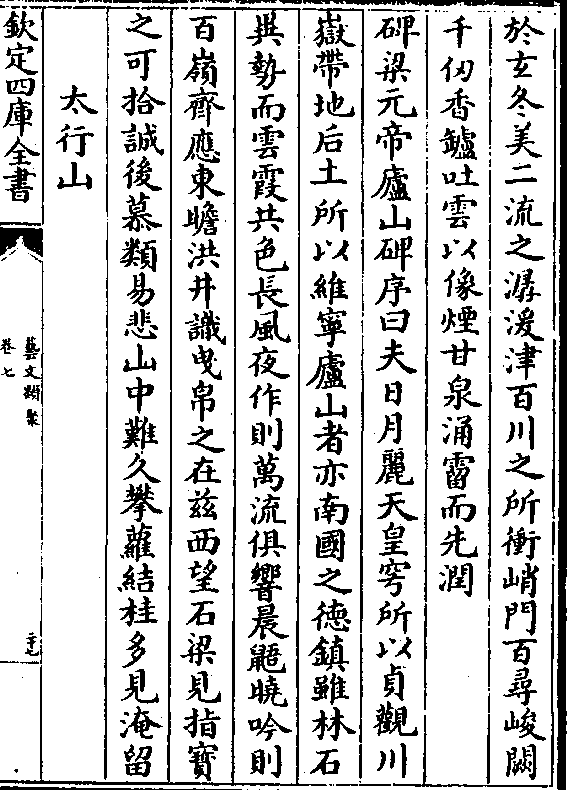 於玄冬美二流之潺湲津百川之所衝峭門百尋峻闕
千仞香鑪吐雲以像煙甘泉涌霤而先潤
碑梁元帝廬山碑序曰夫日月麗天皇穹所以貞觀川
嶽帶地后土所以維寧廬山者亦南國之德鎮雖林石
異勢而雲霞共色長風夜作則萬流俱響晨鼯曉吟則
百嶺齊應東瞻洪井識曳帛之在兹西望石梁見指寶
之可拾誠復慕類易悲山中難久攀蘿結桂多見淹留
太行山
欽定四庫全書
藝文類聚
卷七